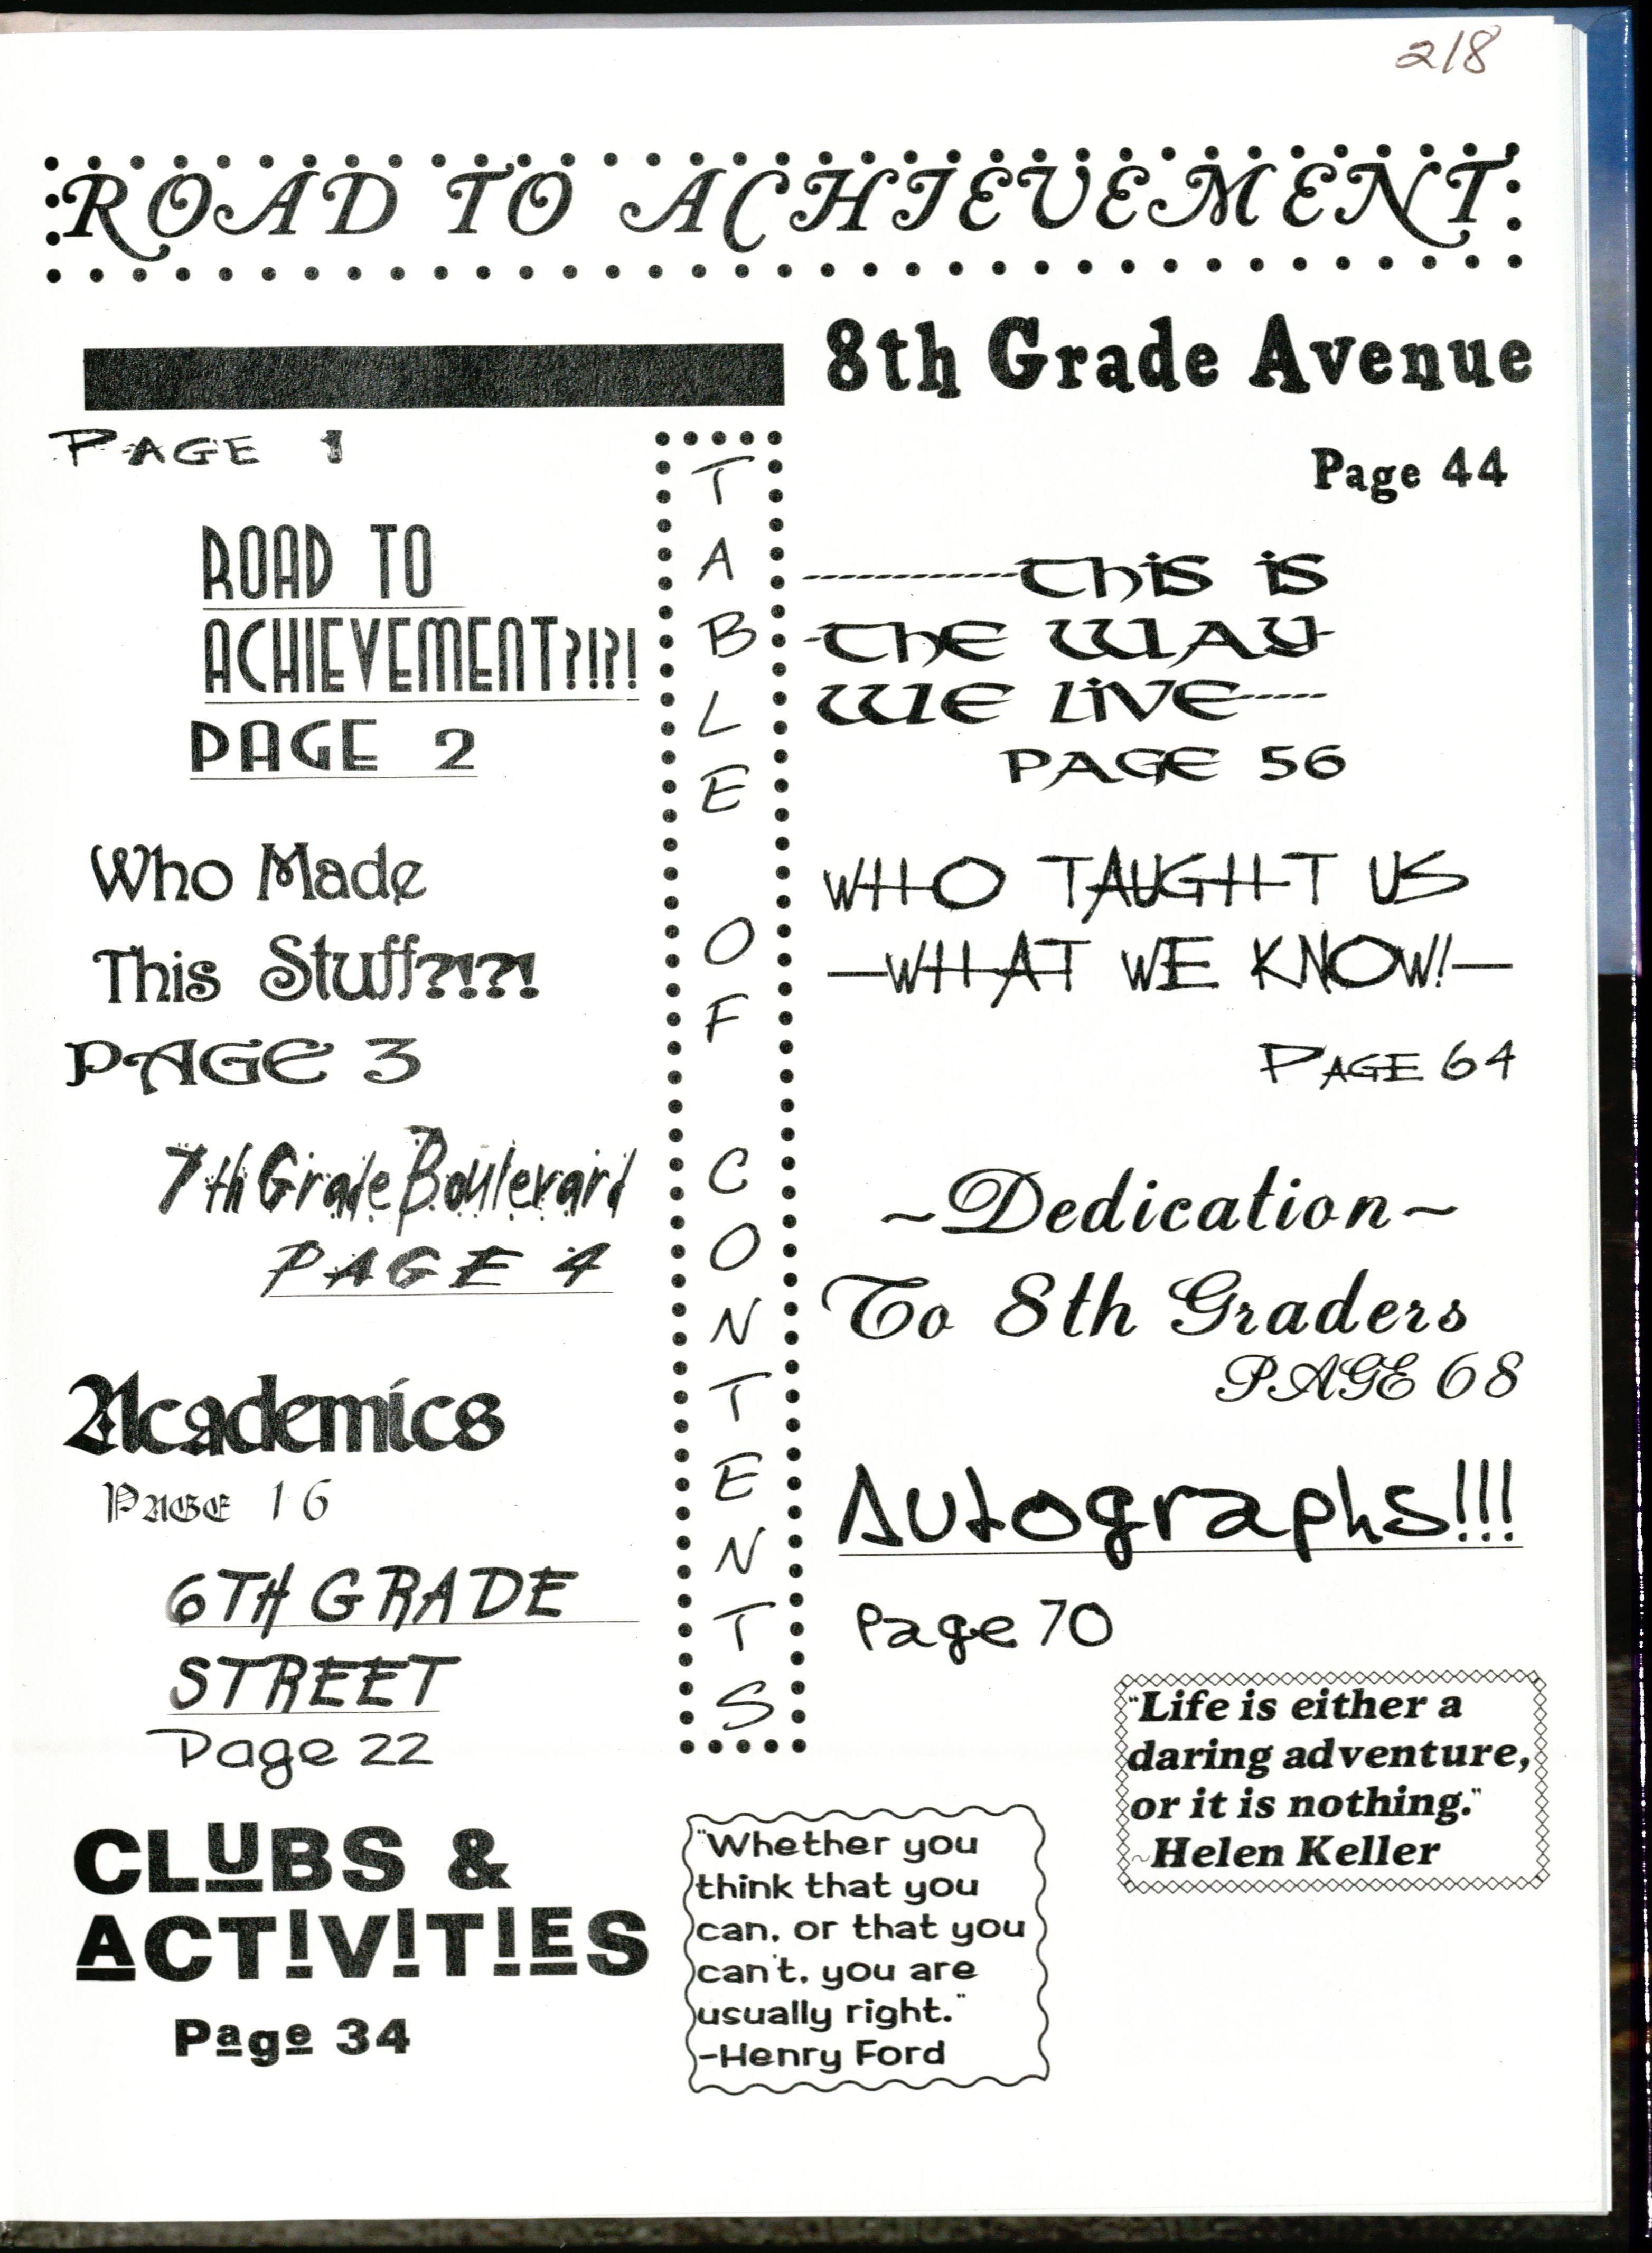 218
ROAD TO ACHIEVEMENT
PAGE 1
ROAD TO
ACHIEVEMENT?!?!
PAGE 2
Who Made
This Stuff?!?!
PAGE 3
7th Grade Boulevard
PAGE 4
Academics
PAGE 16
6TH GRADE
STREET
Page 22
CLUBS &
ACTIVITIES
Page 34
TABLE OF CONTENTS
8th Grade Avenue
Page 44
This is
The WAY
WE LiVE
PAGE 56
WHO TAUGHT US
—WHAT WE KNOW!—
PAGE 64
~Dedication~
To 8th Graders
PAGE 68
Autographs!!!
Page 70
"Life is either a
daring adventure,
or it is nothing."
~Helen Keller
"Whether you
think that you
can, or that you
can't, you are
usually right."
-Henry Ford